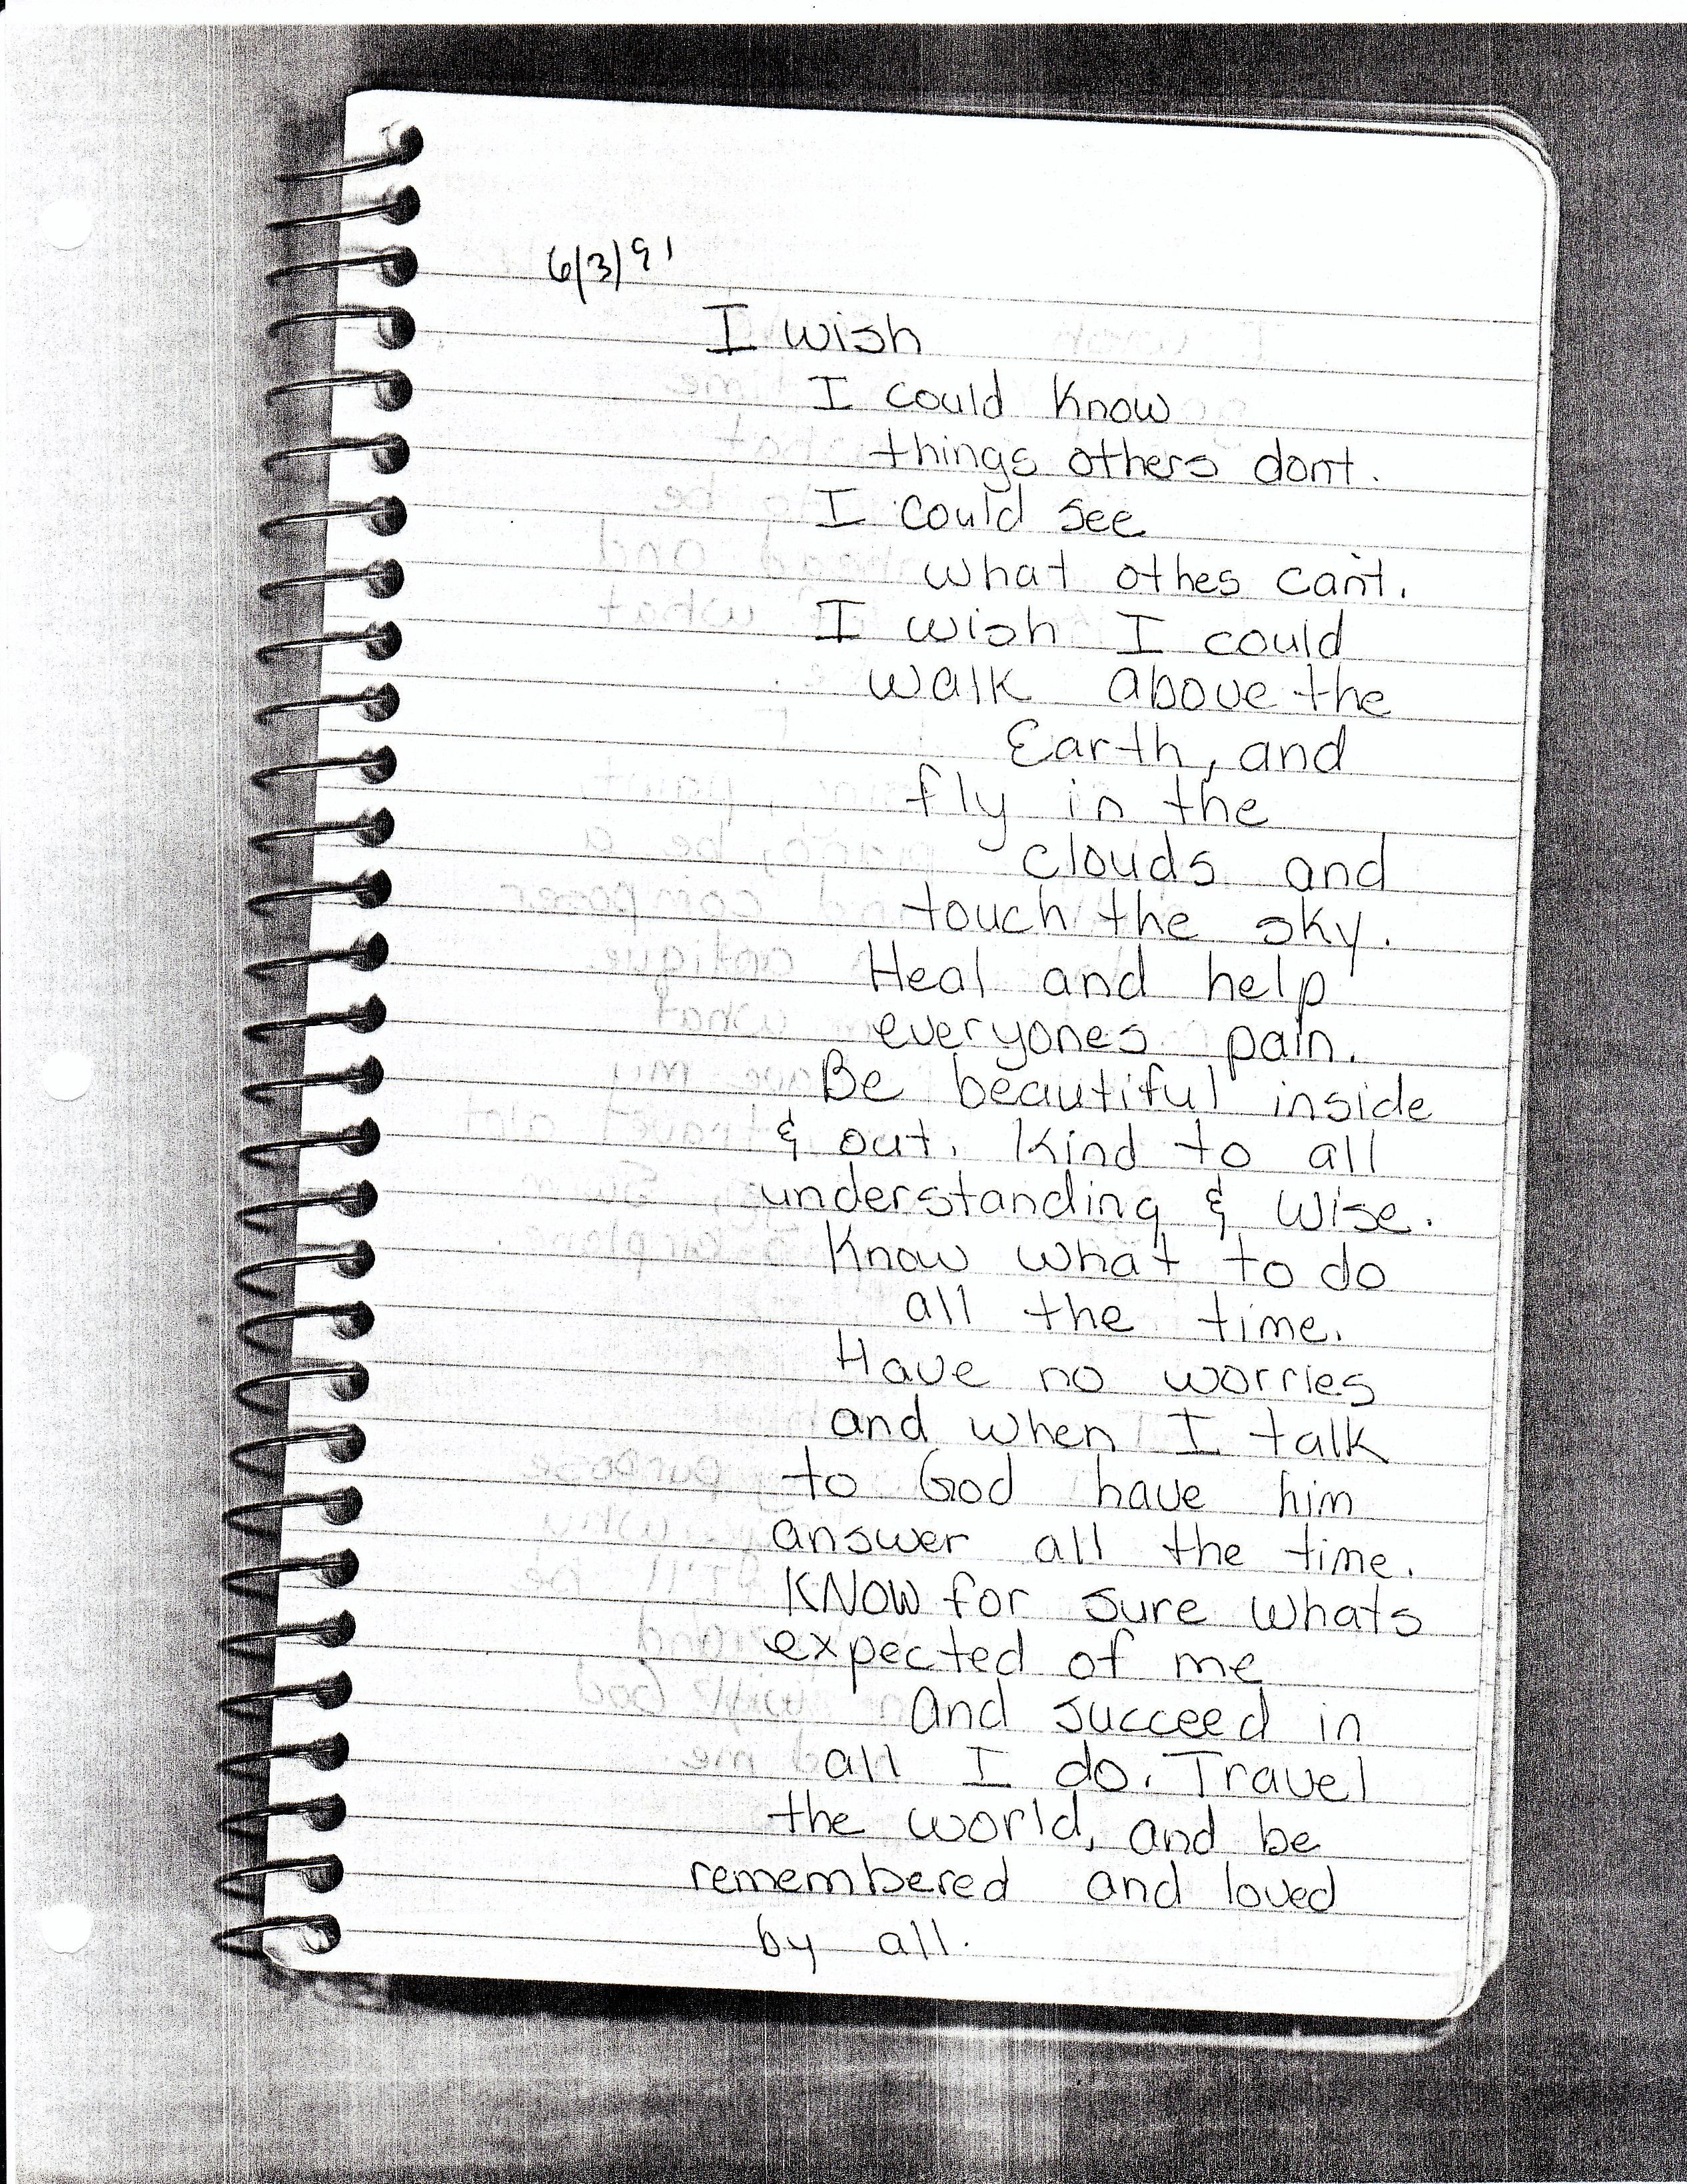 6/3/91
I wish
I could know
things others dont.
I could see
what othes can't.
I wish I could
walk above the
Earth, and
fly in the
clouds and
touch the sky.
Heal and help
everyones pain.
Be beautiful inside
& out. Kind to all
understanding & wise.
Know what to do
all the time.
Have no worries
and when I talk
to God have him
answer all the time.
KNOW for sure whats
expected of me
and succeed in
all I do. Travel
the world, and be
remembered and loved
by all.